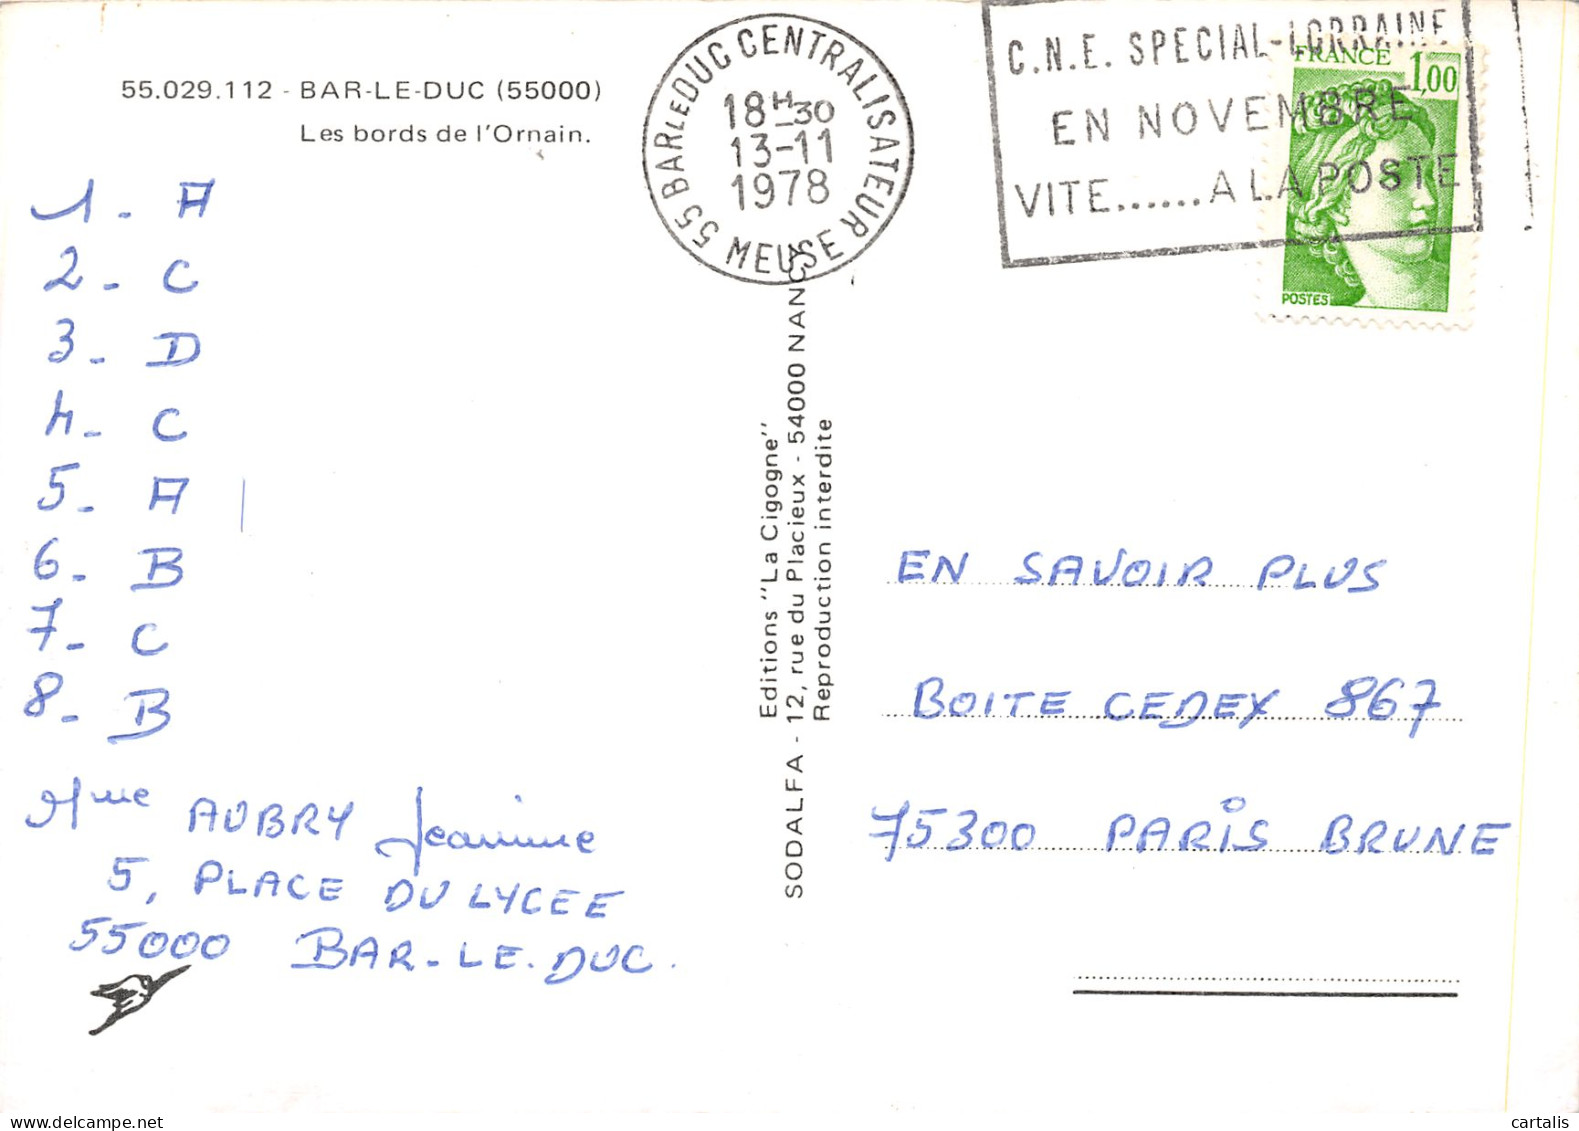 55.029.112 - BAR-LE-DUC (55000)
Les bords de l'Ornain.
1 - A
2 - C
3 - D
4 - C
5 - A
6 - B
7 - C
8 - B
Mme AUBRY Jeanine
5, PLACE DU LYCEE
55000 BAR-LE-DUC.
55 BAR LE DUC CENTRALISATEUR
18H30
13-11
1978
MEUSE
C.N.E. SPECIAL-LORRAINE
EN NOVEMBRE
VITE......A LA POSTE
FRANCE 1,00
POSTES
Editions "La Cigogne"
SODALFA - 12, rue du Placieux - 54000 NANCY
Reproduction interdite
EN SAVOIR PLUS
BOITE CEDEX 867
75300 PARIS BRUNE
www.delcampe.net
cartalis